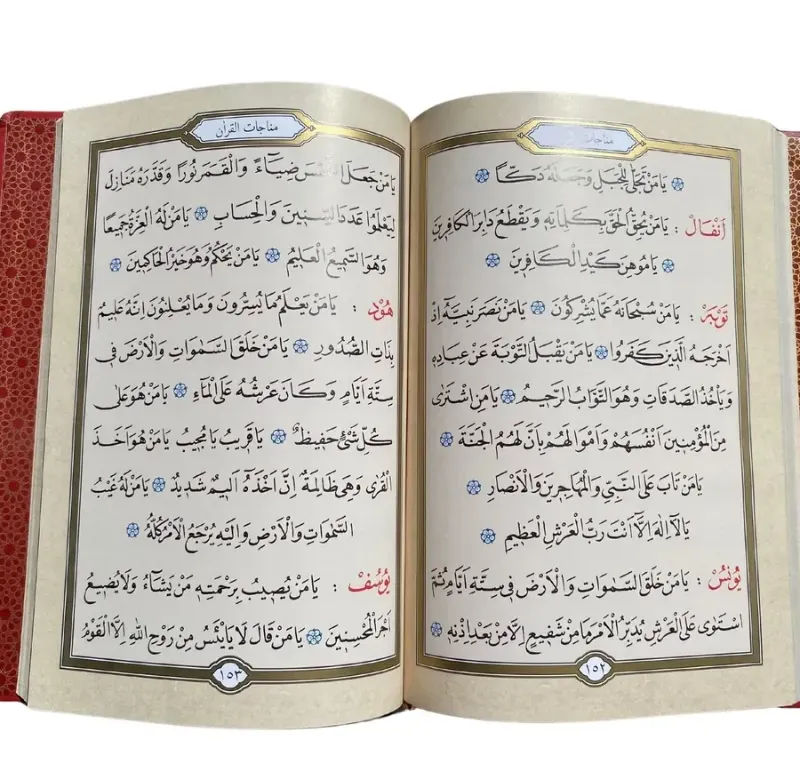 مناجات
يَا مَنْ تَجَلّٰى لِلْجَبَلِ وَجَعَلَهُ دَكًّا
اَنْفَالْ : يَا مَنْ يُحِقُّ الْحَقَّ بِكَلِمَاتِهٖ وَيَقْطَعُ دَابِرَ الْكَافِرٖينَ
يَا مُوهِنَ كَيْدِ الْكَافِرٖينَ
تَوْبَه : يَا مَنْ سُبْحَانَهُ عَمَّا يُشْرِكُونَ يَا مَنْ نَصَرَ نَبِيَّهُ اِذْ
اَخْرَجَهُ الَّذٖينَ كَفَرُوا يَا مَنْ يَقْبَلُ التَّوْبَةَ عَنْ عِبَادِهٖ
وَيَأْخُذُ الصَّدَقَاتِ وَهُوَ التَّوَّابُ الرَّحٖيمُ يَا مَنِ اشْتَرٰى
مِنَ الْمُؤْمِنٖينَ اَنْفُسَهُمْ وَاَمْوَالَهُمْ بِاَنَّ لَهُمُ الْجَنَّةَ
يَا مَنْ تَابَ عَلَى النَّبِيِّ وَالْمُهَاجِرٖينَ وَالْاَنْصَارِ
يَا لَٓا اِلٰهَ اِلَّٓا اَنْتَ رَبُّ الْعَرْشِ الْعَظٖيمِ
يُونُسْ : يَا مَنْ خَلَقَ السَّمٰوَاتِ وَالْاَرْضَ فٖى سِتَّةِ اَيَّامٍ ثُمَّ
اسْتَوٰى عَلَى الْعَرْشِ يُدَبِّرُ الْاَمْرَ مَا مِنْ شَفٖيعٍ اِلَّا مِنْ بَعْدِ اِذْنِهٖ
١٥٢
مناجات القرآن
يَا مَنْ جَعَلَ الشَّمْسَ ضِيَٓاءً وَالْقَمَرَ نُورًا وَقَدَّرَهُ مَنَازِلَ
لِيَعْلَمُوا عَدَدَ السِّنٖينَ وَالْحِسَابِ يَا مَنْ لَهُ الْعِزَّةُ جَمٖيعًا
وَهُوَ السَّمٖيعُ الْعَلٖيمُ يَا مَنْ يَحْكُمُ وَهُوَ خَيْرُ الْحَاكِمٖينَ
هُودْ : يَا مَنْ يَعْلَمُ مَا يُسِرُّونَ وَمَا يُعْلِنُونَ اِنَّهُ عَلٖيمٌ
بِذَاتِ الصُّدُورِ يَا مَنْ خَلَقَ السَّمٰوَاتِ وَالْاَرْضَ فٖى
سِتَّةِ اَيَّامٍ وَكَانَ عَرْشُهُ عَلَى الْمَٓاءِ يَا مَنْ هُوَ عَلٰى
كُلِّ شَیْءٍ حَفٖيظٌ يَا قَرٖيبُ يَا مُجٖيبُ يَا مَنْ هُوَ اَخَذَ
الْقُرٰى وَهِىَ ظَالِمَةٌ اِنَّ اَخْذَهُٓ اَلٖيمٌ شَدٖيدٌ يَا مَنْ لَهُ غَيْبُ
السَّمٰوَاتِ وَالْاَرْضِ وَاِلَيْهِ يُرْجَعُ الْاَمْرُ كُلُّهُ
يُوسُفْ : يَا مَنْ يُصٖيبُ بِرَحْمَتِهٖ مَنْ يَشَٓاءُ وَلَا يُضٖيعُ
اَجْرَ الْمُحْسِنٖينَ يَا مَنْ قَالَ لَا يَايْئَسُ مِنْ رَوْحِ اللّٰهِ اِلَّا الْقَوْمُ
١٥٣